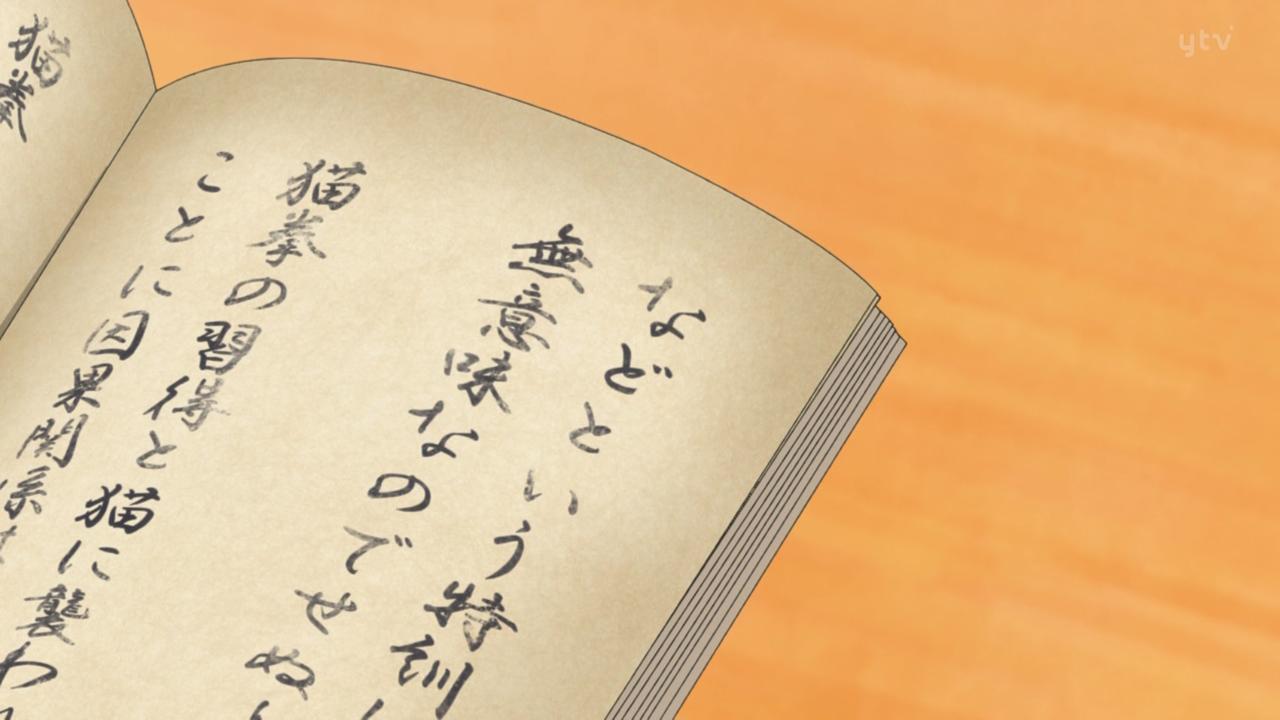 などという特訓
無意味なのでせぬ
猫拳の習得と猫に襲わ
ことに因果関係は
猫拳
ytv